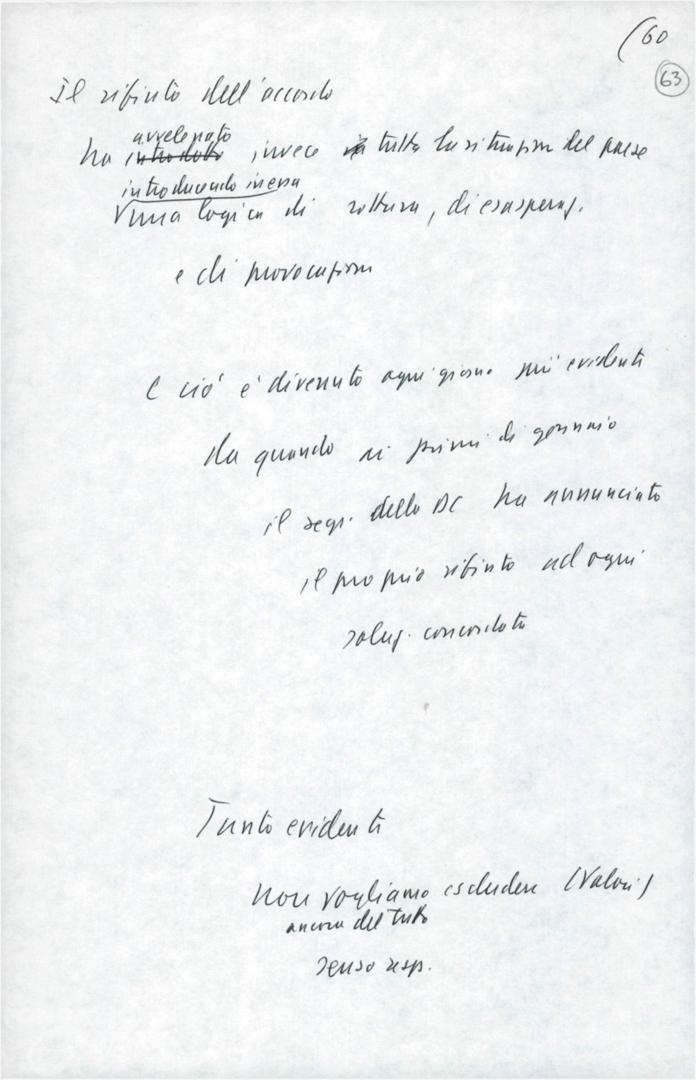 (60
63
Il rifiuto dell'accordo
avvelenato
ha introdotto invece in tutta la situazione del paese
introducendo in essa
una logica di rottura, di esasperaz.
e di provocazione
E ciò è divenuto ogni giorno più evidente
da quando ai primi di gennaio
il segr. della DC ha annunciato
il proprio rifiuto ad ogni
soluz. concordata
Tanto evidente
non vogliamo escludere (Valori)
ancora del tutto
senso resp.